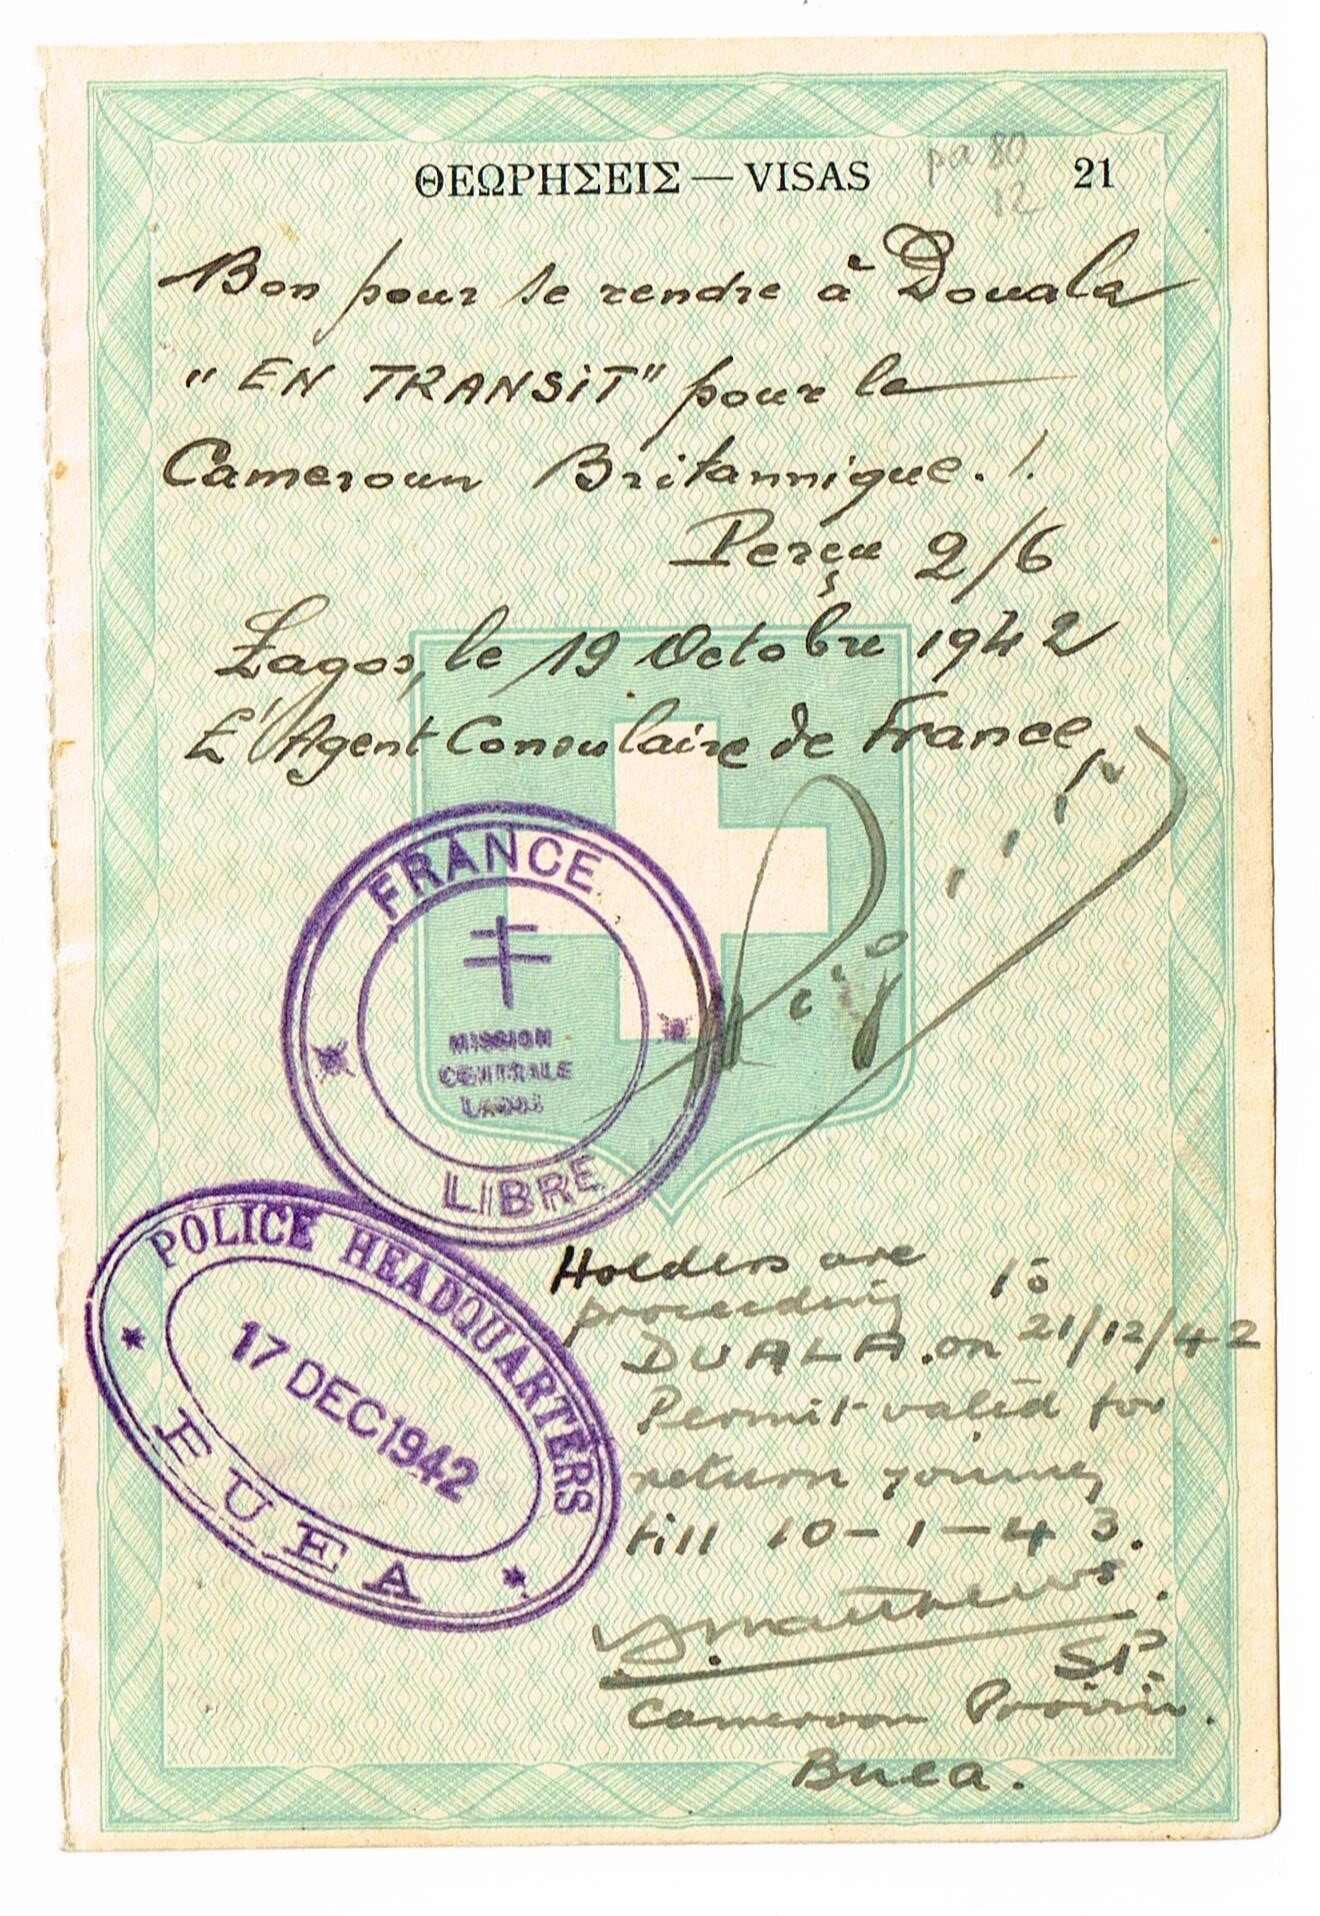 ΘΕΩΡΗΣΕΙΣ — VISAS
pa 80
12
21
Bon pour se rendre à Douala
"EN TRANSIT" pour le
Cameroun Britannique./.
Perçu 2/6
Lagos, le 19 Octobre 1942
L'Agent Consulaire de France,
FRANCE
MISSION
CENTRALE
LAGOS
LIBRE
POLICE HEADQUARTERS
17 DEC 1942
BUEA
Holders are
proceeding to
DUALA. on 21/12/42
Permit valid for
return journey
till 10-1-43.
Matthews
SP.
Cameroon Provin.
Buea.